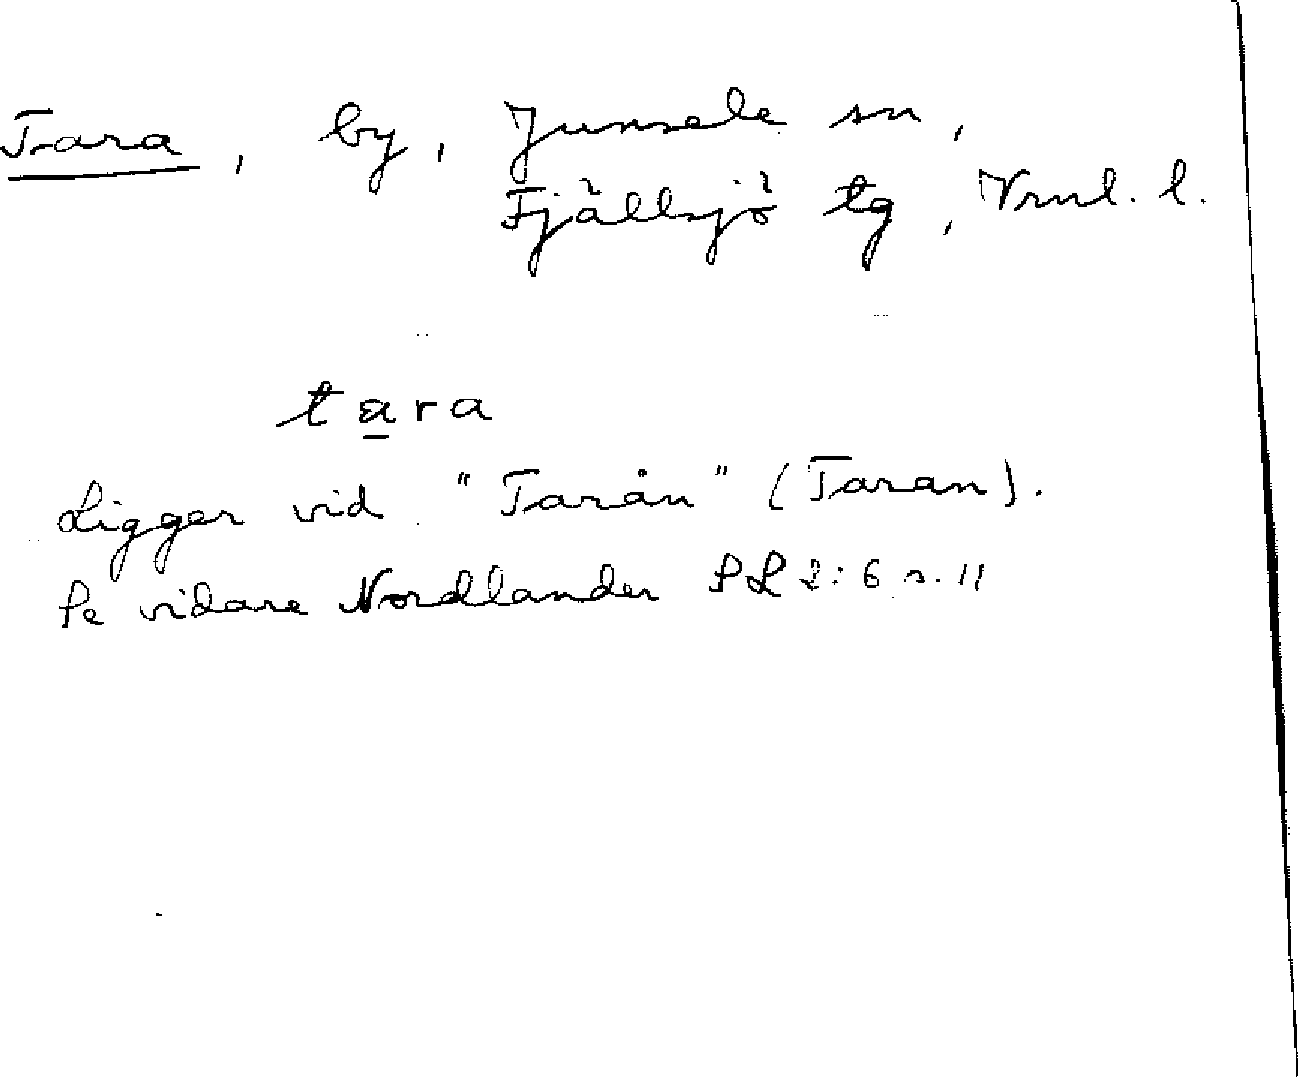 Tara, by, Junsele sn,
Fjällsjö tg, Vrnl. l.
tara
Ligger vid "Tarån" (Taran).
Se vidare Nordlander SL 2:6 s. 11